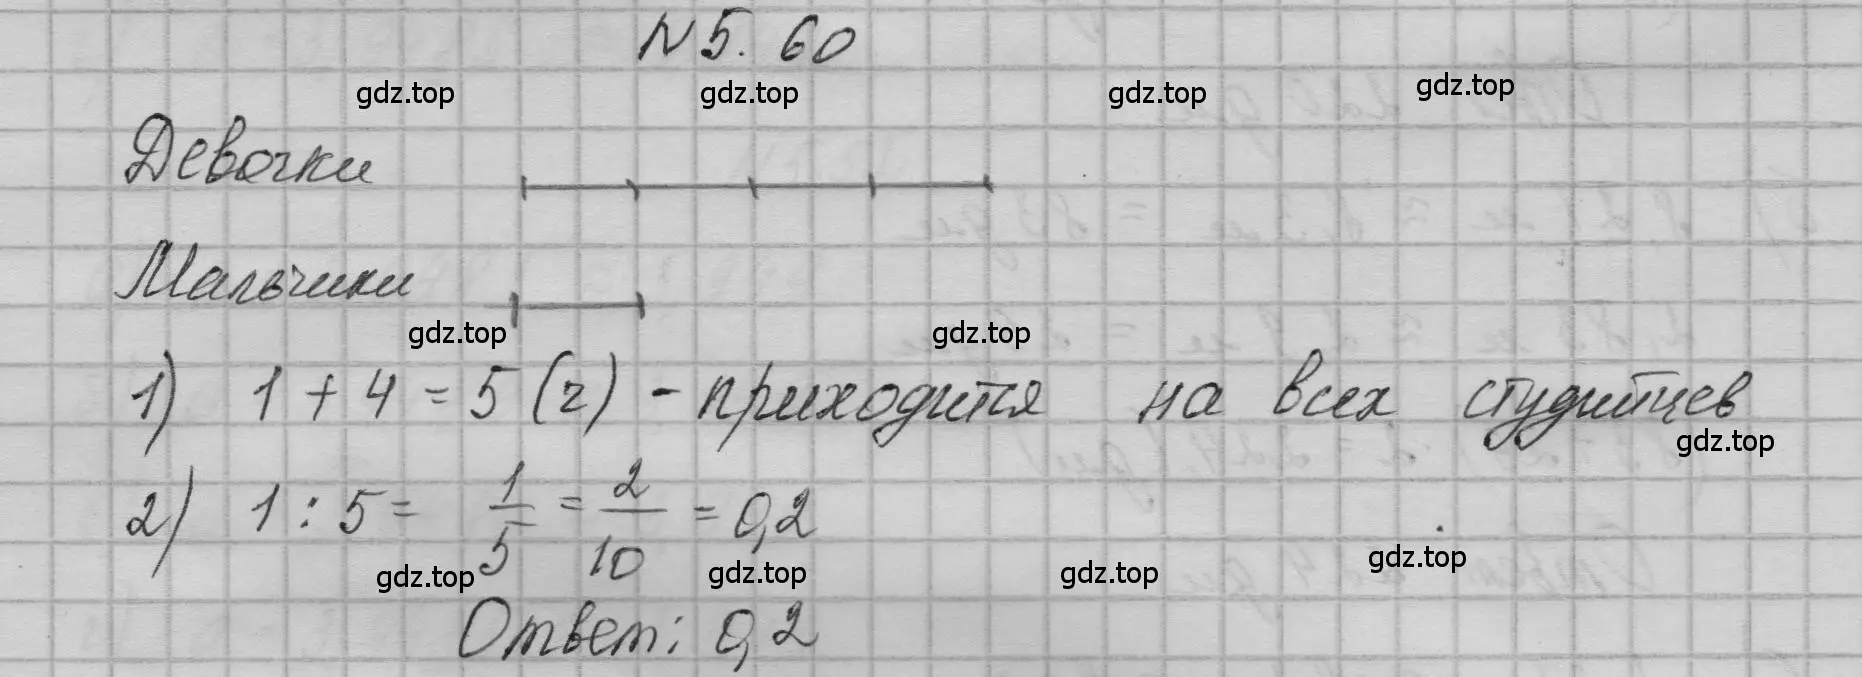 N 5. 60
gdz.top gdz.top gdz.top gdz.top
Девочки
Мальчики
gdz.top gdz.top
1) 1 + 4 = 5 (ч) - приходится на всех
gdz.top
2) 1 : 5 = 1/5 = 2/10 = 0,2
gdz.top gdz.top gdz.top gdz.top
Ответ: 0,2